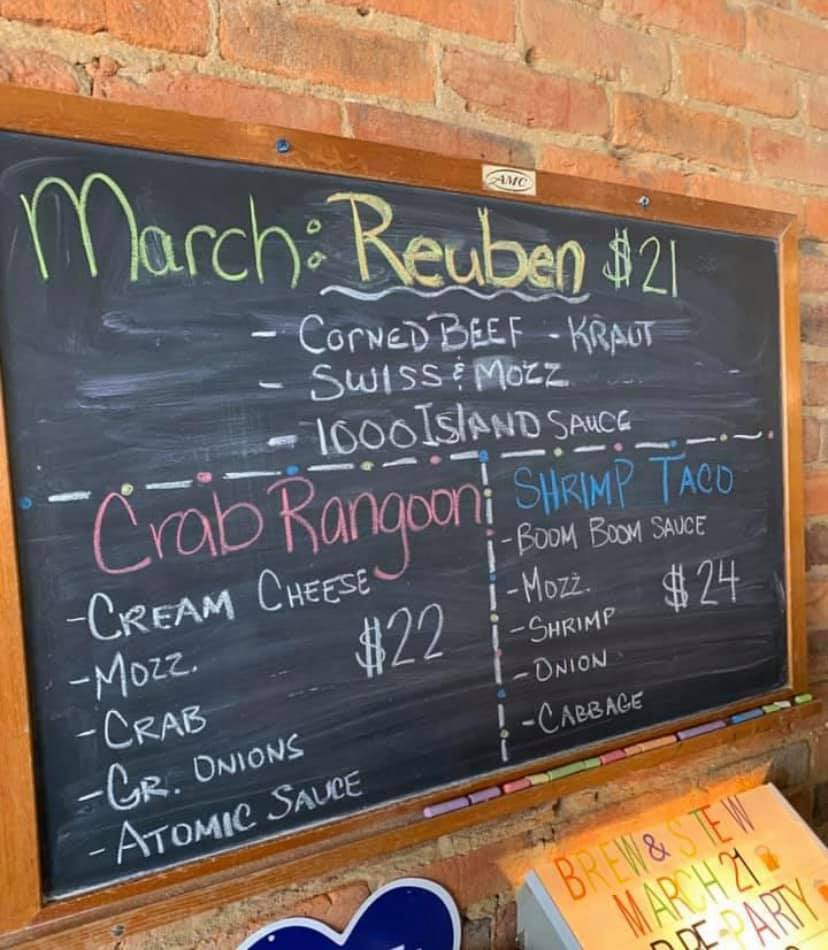 AMC
March: Reuben $21
- CORNED BEEF - KRAUT
- SWISS & MOZZ
- 1000 ISLAND SAUCE
Crab Rangoon
- CREAM CHEESE
- MOZZ.
$22
- CRAB
- GR. ONIONS
- ATOMIC SAUCE
SHRIMP TACO
- BOOM BOOM SAUCE
- MOZZ.
$24
- SHRIMP
- ONION
- CABBAGE
BREW & STEW
MARCH 21
PRE-PARTY